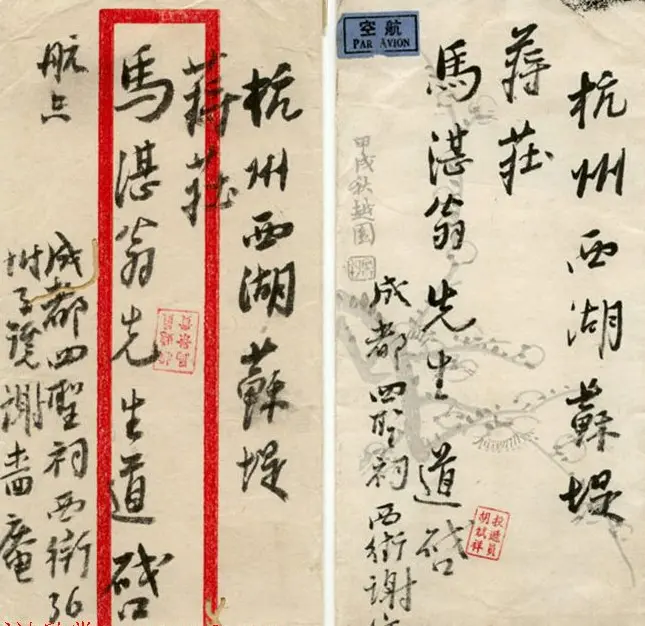 杭州西湖蘇堤
蔣莊
馬湛翁先生道啓
航空
成都四聖祠西街36
附子號謝嗇庵
航空
PAR AVION
杭州西湖蘇堤
蔣莊
馬湛翁先生道啓
甲戌秋越園
成都四聖祠西街謝
投遞員
胡斌祥